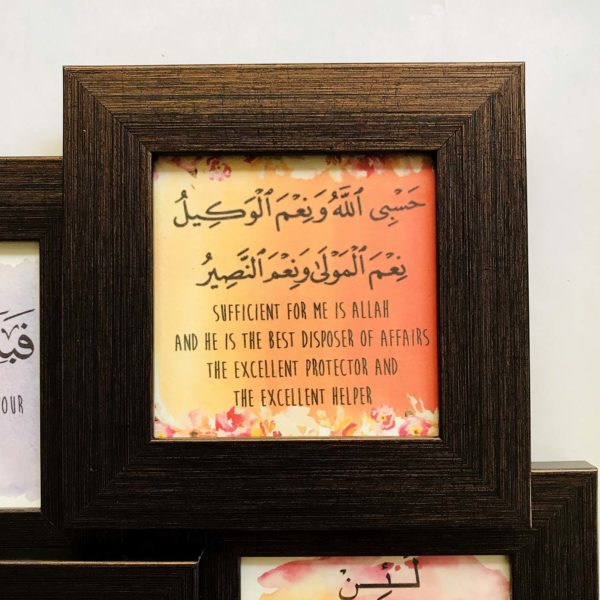 حَسْبِي ٱللَّهُ وَنِعْمَ ٱلْوَكِيلُ
نِعْمَ ٱلْمَوْلَىٰ وَنِعْمَ ٱلنَّصِيرُ
SUFFICIENT FOR ME IS ALLAH
AND HE IS THE BEST DISPOSER OF AFFAIRS
THE EXCELLENT PROTECTOR AND
THE EXCELLENT HELPER
OUR
لَئِنْ